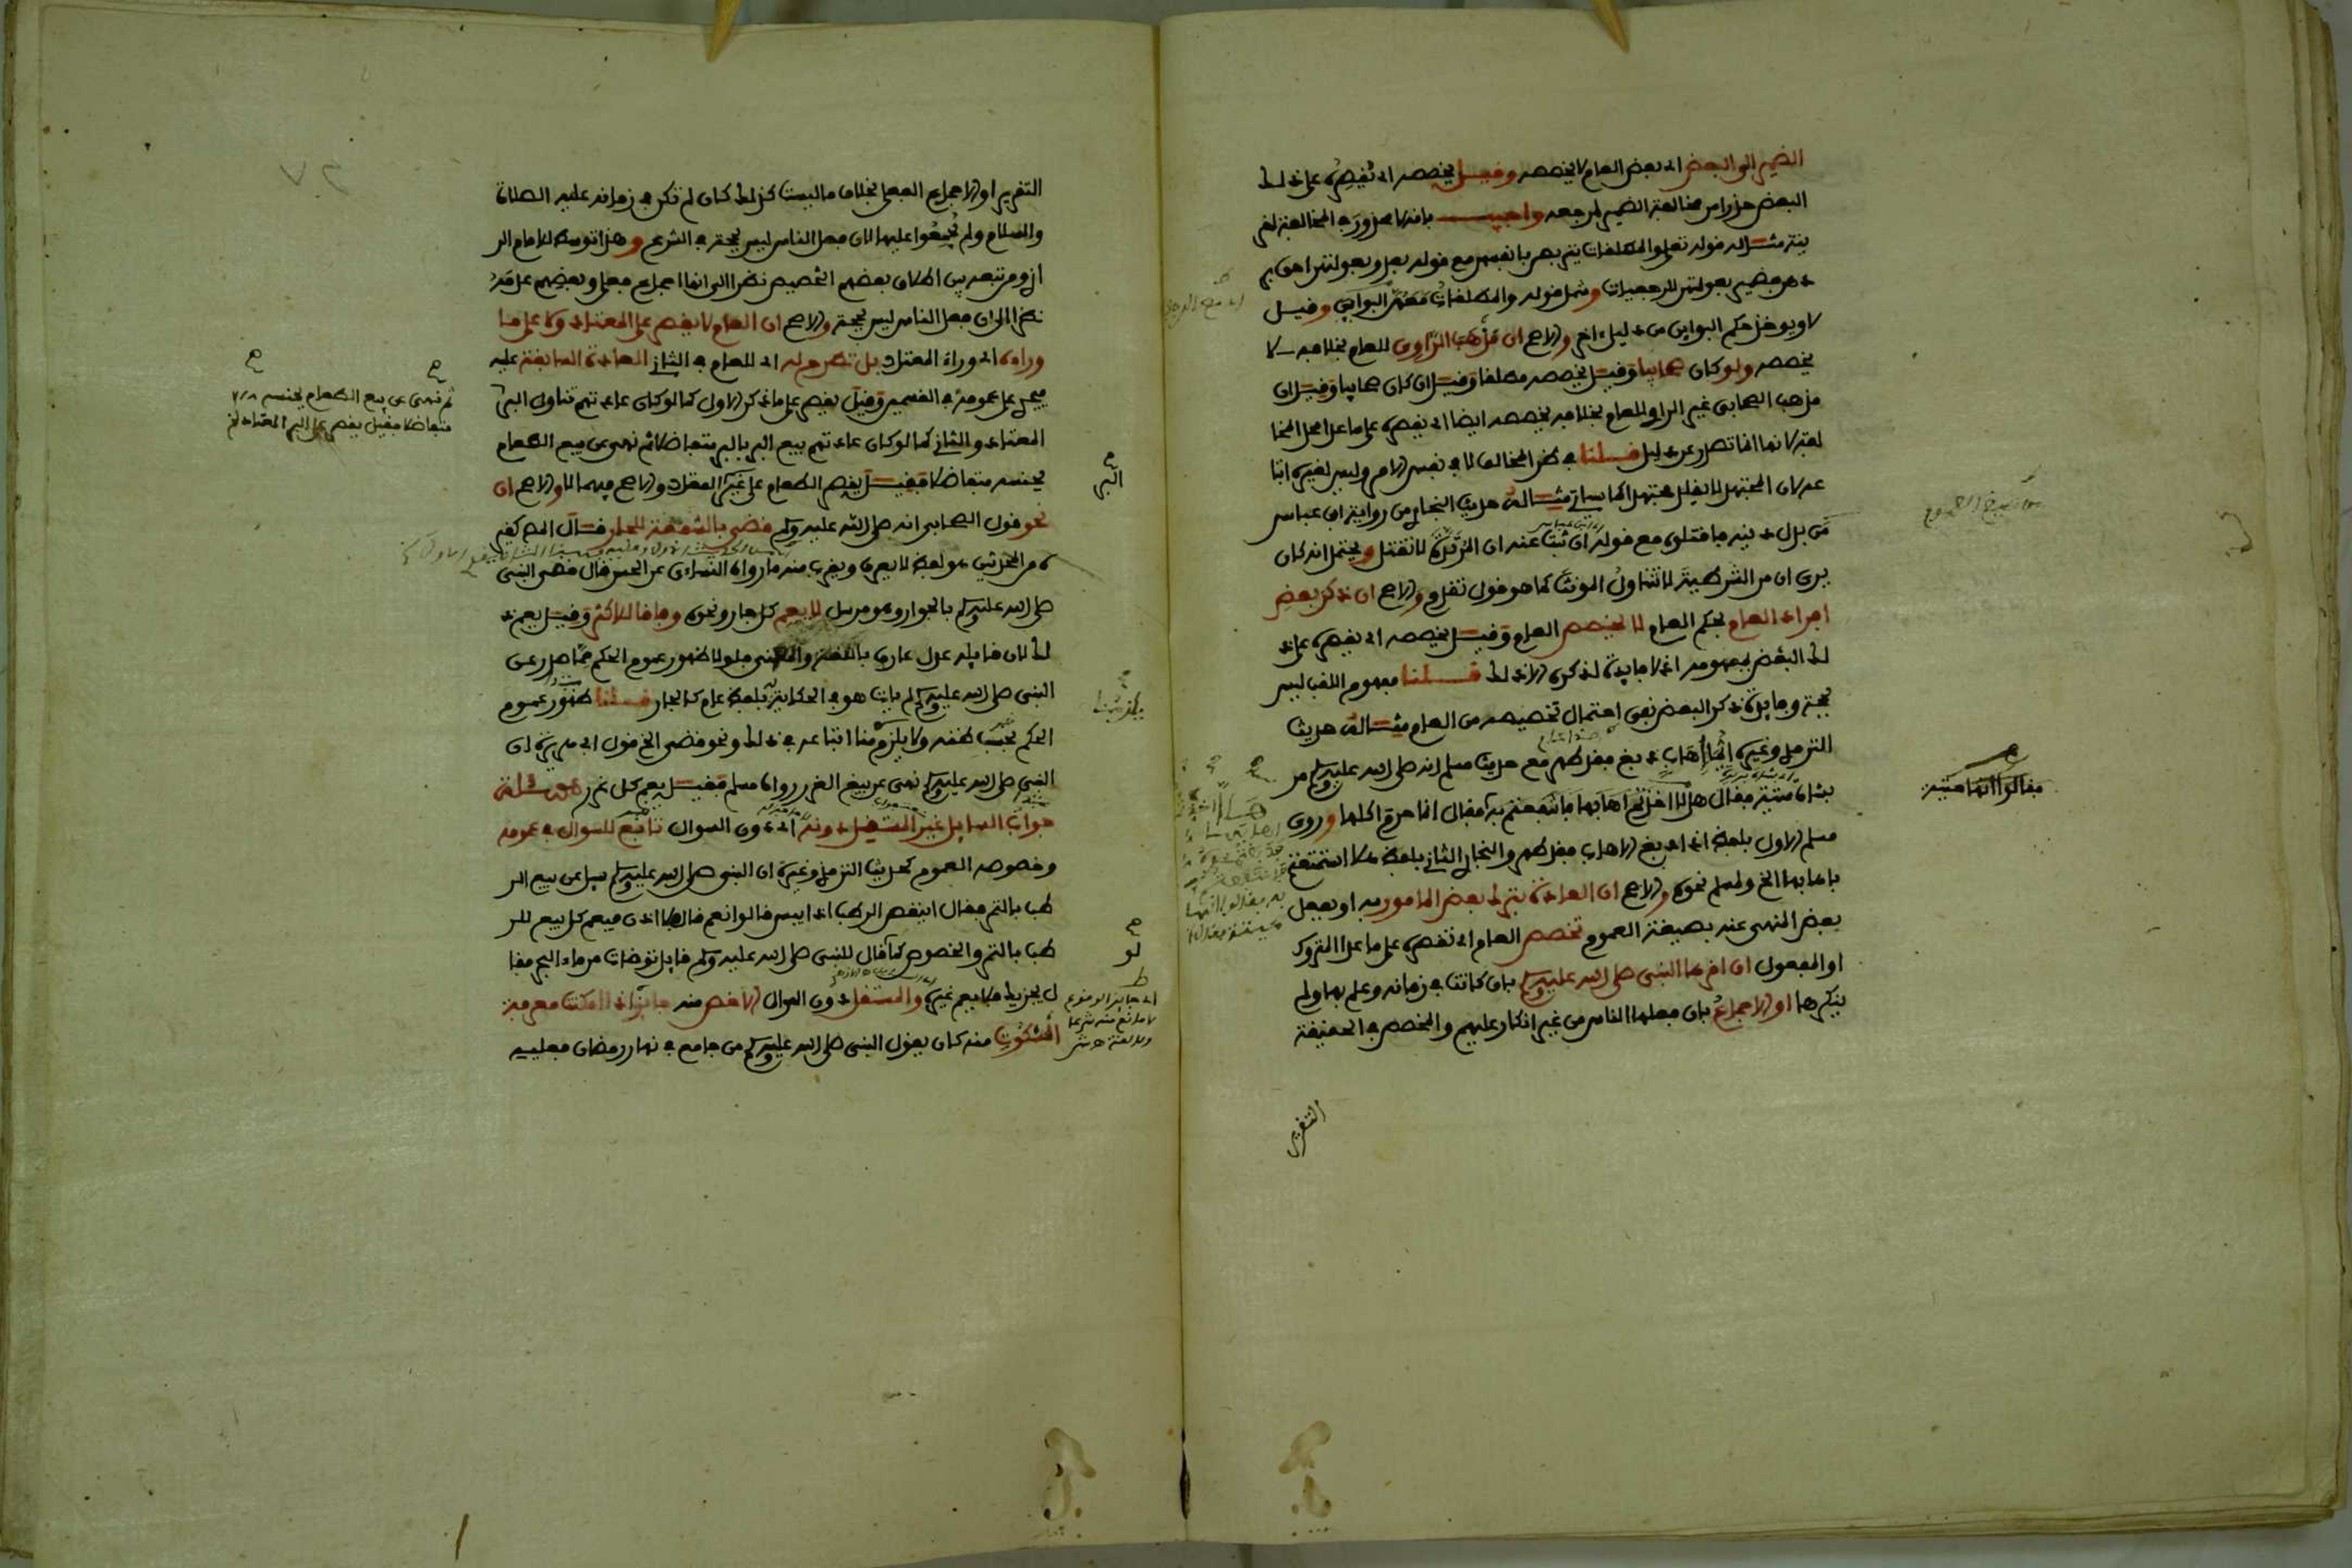 الضمير الى البعض اي بعض العام لا يخصصه وقيل يخصصه اي يقصره على ذلك
البعض حذرا من مخالفة الضمير لمرجعه واجيب بانه لا محذور في المخالفة لقر
ينة مثاله قوله تعلى والمطلقات يتربصن بانفسهن مع قوله بعد وبعولتهن احق بر
دهن فضمير بعولتهن للرجعيات وشمل قوله والمطلقات معهن البواين وقيل
لا ويوخذ حكم البواين من دليل اخر والاصح ان مذهب الراوي للعام بخلافه لا
يخصصه ولو كان صحابيا وقيل يخصصه مطلقا وقيل ان كان صحابيا وقيل ان
مذهب الصحابي غير الراوي للعام بخلافه يخصصه ايضا اي يقصره على ما عدا محل المخا
لفة لانها انما تصدر عن دليل قلنا في ظن المخالف لا في نفس الامر وليس لغيره اتبا
عه لان المجتهد لا يقلد مجتهدا كما سياتي مثاله حديث البخاري من رواية ابن عباس
من بدل دينه فاقتلوه مع قوله ان ثبت عنه ان المرتدة لا تقتل ويحتمل انه كان
يرى ان من الشرطية لا تتناول المونث كما هو قول تقدم والاصح ان ذكر بعض
افراد العام بحكم العام لا يخصص العام وقيل يخصصه اي يقصره على ذ
لك البعض بمفهومه اذ لا فايدة لذكره الا ذلك قلنا مفهوم اللقب ليس
بحجة وفايدة ذكر البعض نفي احتمال تخصيصه من العام مثاله حديث
الترمذي وغيره ايما اهاب دبغ فقد طهر مع حديث مسلم انه صلى الله عليه وسلم مر
بشاة ميتة فقال هلا اخذتم اهابها فانتفعتم به فقال انما حرم اكلها وروى
مسلم الاول بلفظ اذا دبغ الاهاب فقد طهر والبخاري الثاني بلفظ هلا استمتعتم
باهابها الخ ولمسلم نحوه والاصح ان العادة بترك بعض المامور به او بفعل
بعض المنهى عنه بصيغة العموم تخصص العام اي تقصره على ما عدا المتروك
او المفعول ان اقرها النبي صلى الله عليه وسلم بان كانت في زمانه وعلم بها ولم
ينكرها او الاجماع بان فعلها الناس من غير انكار عليهم والمخصص في الحقيقة
التقرير
فقالوا انها ميتة
التقرير او الاجماع الفعلي بخلاف ما ليست كذلك كان لم تكن في زمانه عليه الصلاة
والسلام ولم يجمعوا عليها لان فعل الناس ليس بحجة في الشرع وهذا توسط للامام الر
ازي ومن تبعه بين اطلاق بعضهم التخصيص نظرا الى انها اجماع فعلي وبعضهم عدمه
نظرا الى ان فعل الناس ليس بحجة والاصح ان العام لا يقصر على المعتاد ولا على ما
وراءه اي وراء المعتاد بل تطرح له اي للعام في الثاني العادة السابقة عليه
فيجري على عمومه في القسمين وقيل يقصر على ما ذكر الاول كما لو كان عادتهم تناول البر
المعتاد والثاني كما لو كان عادتهم بيع البر بالبر متفاضلا ثم نهى عن بيع الطعام
بجنسه متفاضلا فقيل يقصر الطعام على غير المعتاد والاصح فيهما لا والاصح ان
نحو قول الصحابي انه صلى الله عليه وسلم قضى بالشفعة للجار قال المصنف كغير
ه من المحدثين هو لفظ لا يعرف ويقرب منه ما رواه النساءي عن الحسن قال قضى النبي
صلى الله عليه وسلم بالجوار وهو مرسل لا يعم كل جار ونحوه وفاقا للاكثر وقيل يعم ذ
لك لان قايله عدل عارف باللغة والمعنى فلولا ظهور عموم الحكم مما صدر عن
النبي صلى الله عليه وسلم لم يات هو في الحكاية له بلفظ عام كالجار قلنا ظهور عموم
الحكم بحسب ظنه ولا يلزمنا اتباعه في ذلك ونحو قضى الخ قول ابي هريرة ان
النبي صلى الله عليه وسلم نهى عن بيع الغرر رواه مسلم فقيل يعم كل غرر
جواب السايل غير المستقل دونه اي دون السوال تابع للسوال في عمومه
وخصوصه العموم كحديث الترمذي وغيره ان النبي صلى الله عليه وسلم سيل عن بيع الر
طب بالتمر فقال اينقص الرطب اذا يبس قالوا نعم قال فلا اذن فيعم كل بيع للر
طب بالتمر والخصوص كما لو قال للنبي صلى الله عليه وسلم قايل توضات من ماء البحر فقا
ل يجزيك فلا يعم غيره والمستقل دون السوال الاخص منه جايز اذا امكنت معرفة
المسكوت منه كان يقول النبي صلى الله عليه وسلم من جامع في نهار رمضان فعليه
ثم نهى عن بيع الطعام بجنسه
متفاضلا فقيل يقصر على البر المعتاد
البر
لو